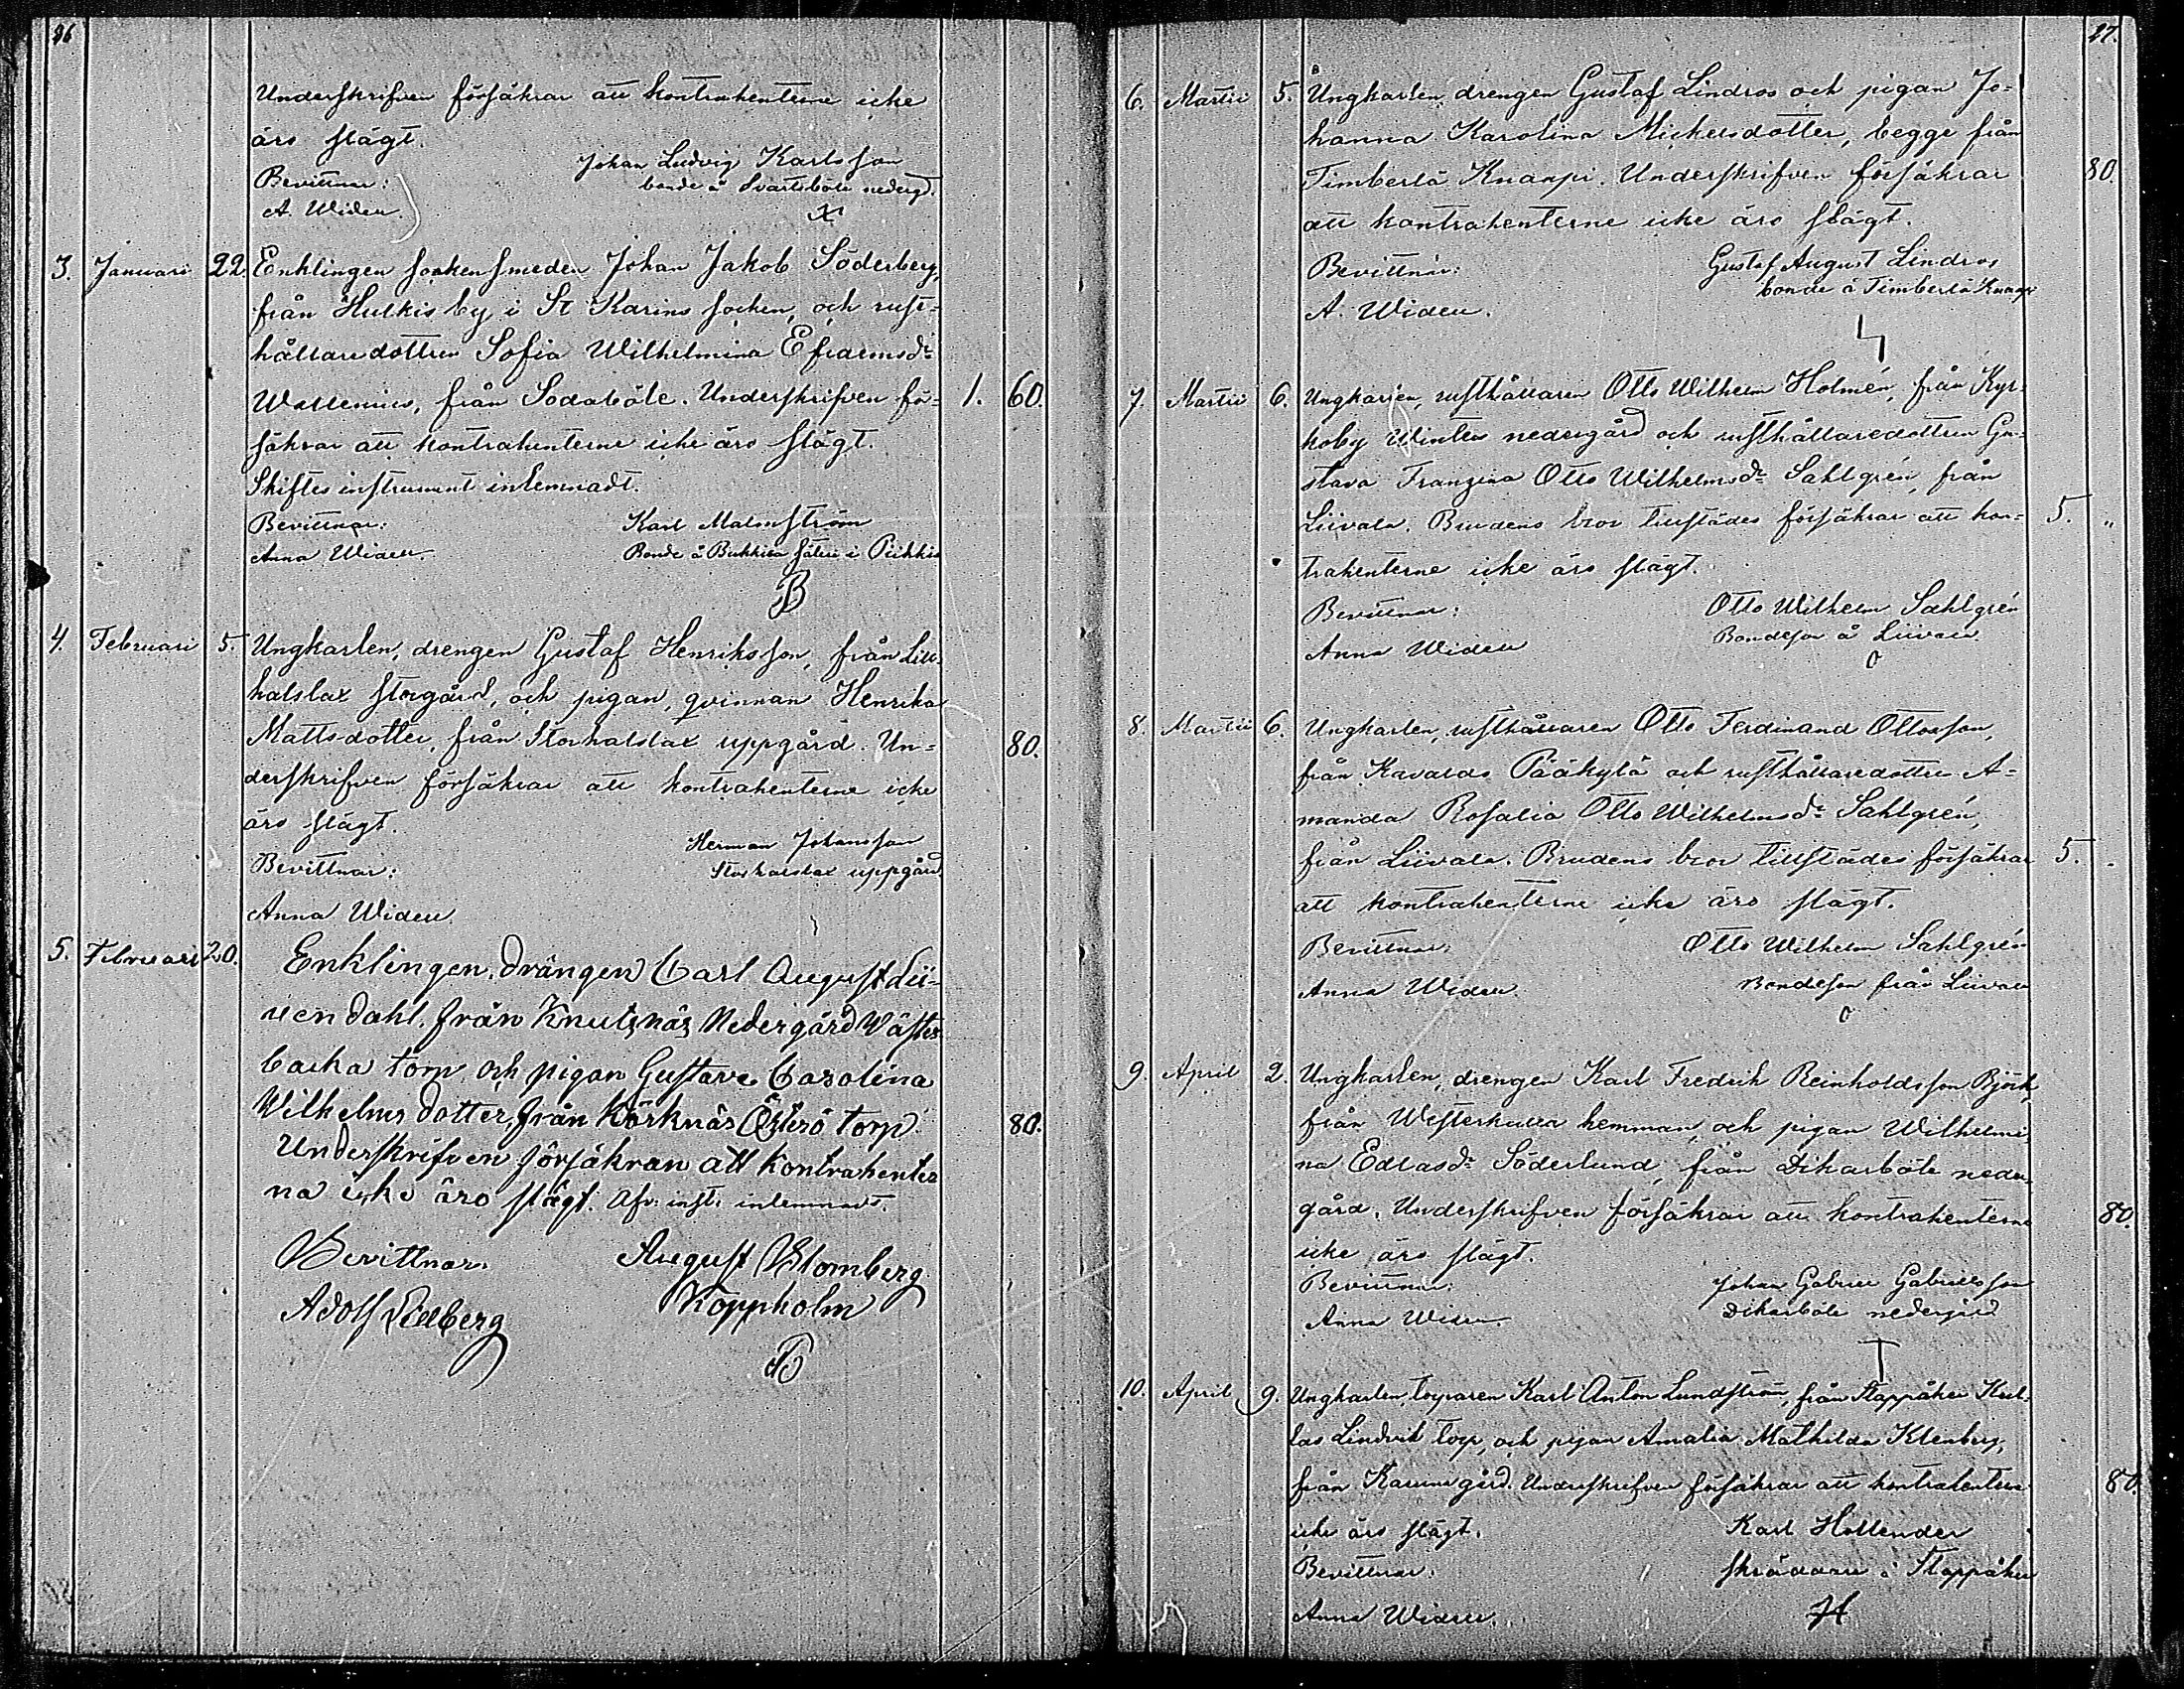 26
Underskrifven försäkrar att kontrahenterne icke
äro slägt.
Johan Ludvig Karlsson
Bevittnar:
bonde å Svartsböle nederg.
A. Widen.
X
3. Januari 22. Enklingen sockensmeden Johan Jakob Söderberg,
från Hulkis by i St Karins socken, och rust-
hållaredottren Sofia Wilhelmina Efraimsdr
Wallenius, från Södaböle. Underskrifven för- 1. 60.
säkrar att kontrahenterne icke äro slägt.
Skiftes instrument inlemnadt.
Bevittnar: Karl Malmström
Anna Widen. Bonde å säteri i Piikkis
B
4. Februari 5. Ungkarlen, drengen Gustaf Henriksson, från Lill-
halslax storgård, och pigan, qvinnan Henrika
Mattsdotter, från Storhalslax uppgård. Un- 80.
derskrifven försäkrar att kontrahenterne icke
äro slägt.
Herman Johansson
Bevittnar: Storhalslax uppgård
Anna Widen
5. Februari 20. Enklingen, drängen Carl August Lii-
nendahl, från Knutsnäs Nedergård Wäster-
backa torp, och pigan Gustava Carolina
Wilhelmsdotter, från Körknäs Österö torp 80.
Underskrifven försäkran att Kontrahente
na icke äro slägt. Afv. inst. inlemnadt.
Bevittnar August Blomberg
Adolf Lillberg Koppholm
B
27.
6. Martii 5. Ungkarlen, drengen Gustaf Lindros och pigan Jo-
hanna Karolina Mickelsdotter, begge från
Timberlä Knaapi. Underskrifven försäkrar 80.
att kontrahenterne icke äro slägt.
Bevittnar: Gustaf August Lindros
bonde å Timberlä Knaapi
A. Widen.
7. Martii 6. Ungkarlen, rusthållaren Otto Wilhelm Holmén, från Kyr-
koby Winters nedergård och rusthållaredottren Gu-
stava Franzina Otto Wilhelmsdr Sahlgrén, från
Liivala. Brudens bror tillstädes försäkrar att kon- 5. "
trahenterne icke äro slägt.
Bevittnar: Otto Wilhelm Sahlgrén
Anna Widen Bondeson å Liivala
o
8. Martii 6. Ungkarlen, rusthållaren Otto Ferdinand Ottosson,
från Kavaldo Pääkylä och rusthållaredottren A-
manda Rosalia Otto Wilhelmsdr Sahlgrén,
från Liivala. Brudens bror tillstädes försäkrar 5. -
att kontrahenterne icke äro slägt.
Bevittnar: Otto Wilhelm Sahlgrén
Anna Widen. Bondeson från Liivala
o
9. April 2. Ungkarlen, drengen Karl Fredrik Reinholdsson Björk,
från Westerkulla hemman, och pigan Wilhelmi-
na Edlasdr Söderlund, från Dikarböle neder-
gård. Underskrifven försäkrar att kontrahenterne 80.
icke äro slägt.
Bevittnar: Johan Gabriel Gabrielsson
Anna Widen Dikarböle nedergård
T
10. April 9. Ungkarlen, torparen Karl Anton Lundström, från Stappåker Kul-
las Lindvik torp, och pigan Amalia Mathilda Klenberg,
från Karuna gård. Underskrifven försäkrar att kontrahenterne 80
icke äro slägt. Karl Hollender
Bevittnar. skräddare i Stappåker
Anna Widen. H